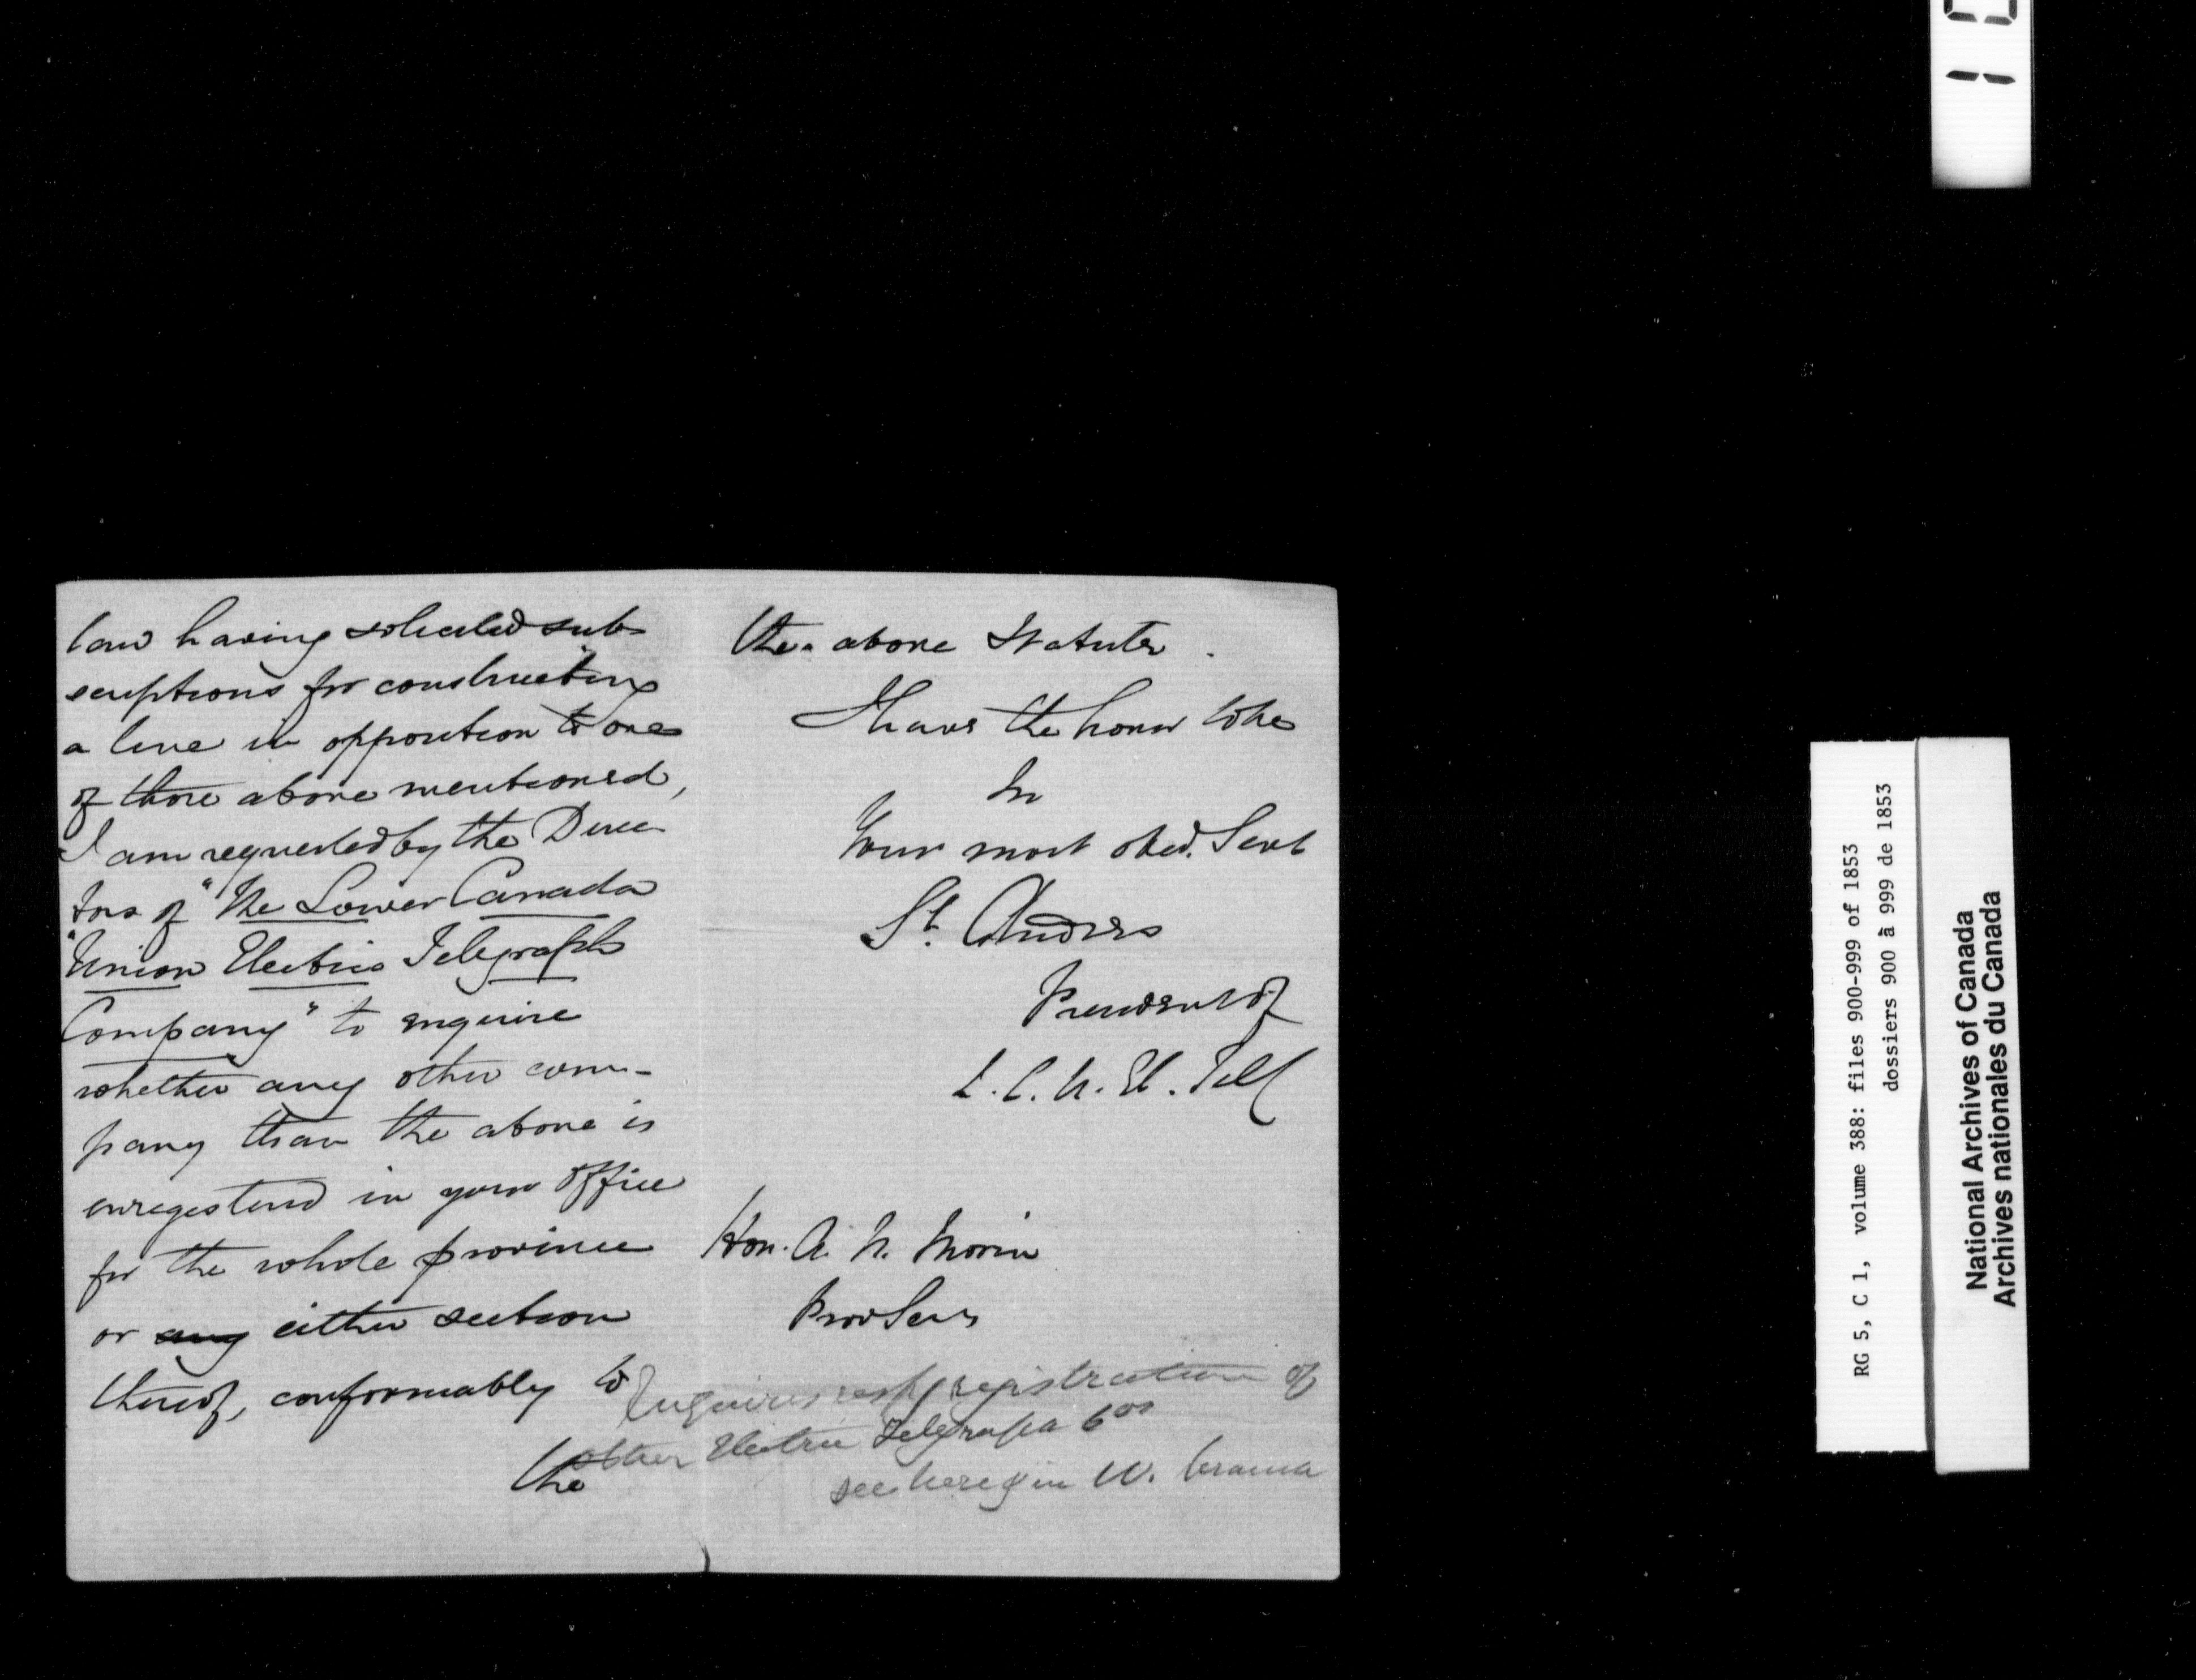 law having solicited sub-
scriptions for constructing
a line in opposition to one
of those above mentioned,
I am requested by the Direc-
tors of "The Lower Canada
"Union Electric Telegraph
Company" to enquire
whether any other com-
pany than the above is
enregistered in your office
for the whole province
or any either section
thereof, conformably to
the
the above Statutes.
I have the honor to be
Sir
Your most obed. Servt
St. Andrews
President of
L. C. U. El. Tel C
Hon. A. N. Morin
Prov Secy
Enquires resp registration of
other Electric Telegraph Cos
see herein W.
RG 5, C 1, volume 388: files 900-999 of 1853
dossiers 900 à 999 de 1853
National Archives of Canada
Archives nationales du Canada